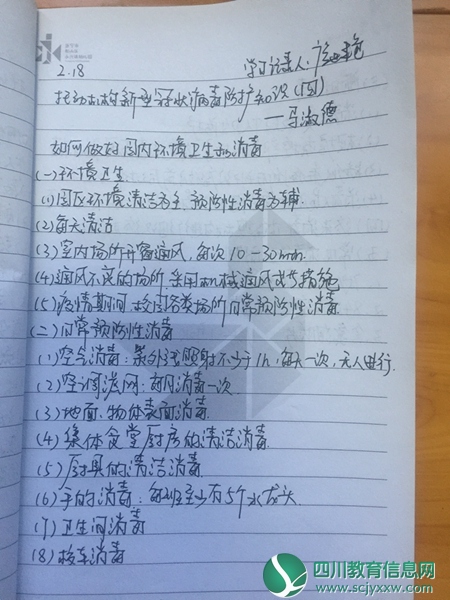 2.18
学习记录人:
托幼机构新型冠状病毒防护知识(四)
——马淑德
如何做好园内环境卫生和消毒
(一)环境卫生
(1)园区环境清洁为主,预防性消毒为辅.
(2)每天清洁
(3)室内场所开窗通风,每次10-30min.
(4)通风不良的场所,采用机械通风或其措施
(5)疫情期间,校园各类场所日常预防性消毒.
(二)日常预防性消毒
(1)空气消毒:紫外线照射不少于1h,每天一次,无人进行.
(2)空调滤网:每月消毒一次.
(3)地面、物体表面消毒.
(4)集体食堂厨房的清洁消毒
(5)厨具的清洁消毒.
(6)手的消毒:每班至少有5个水龙头.
(7)卫生间消毒
(8)校车消毒
四川教育信息网
www.scjyxxw.com